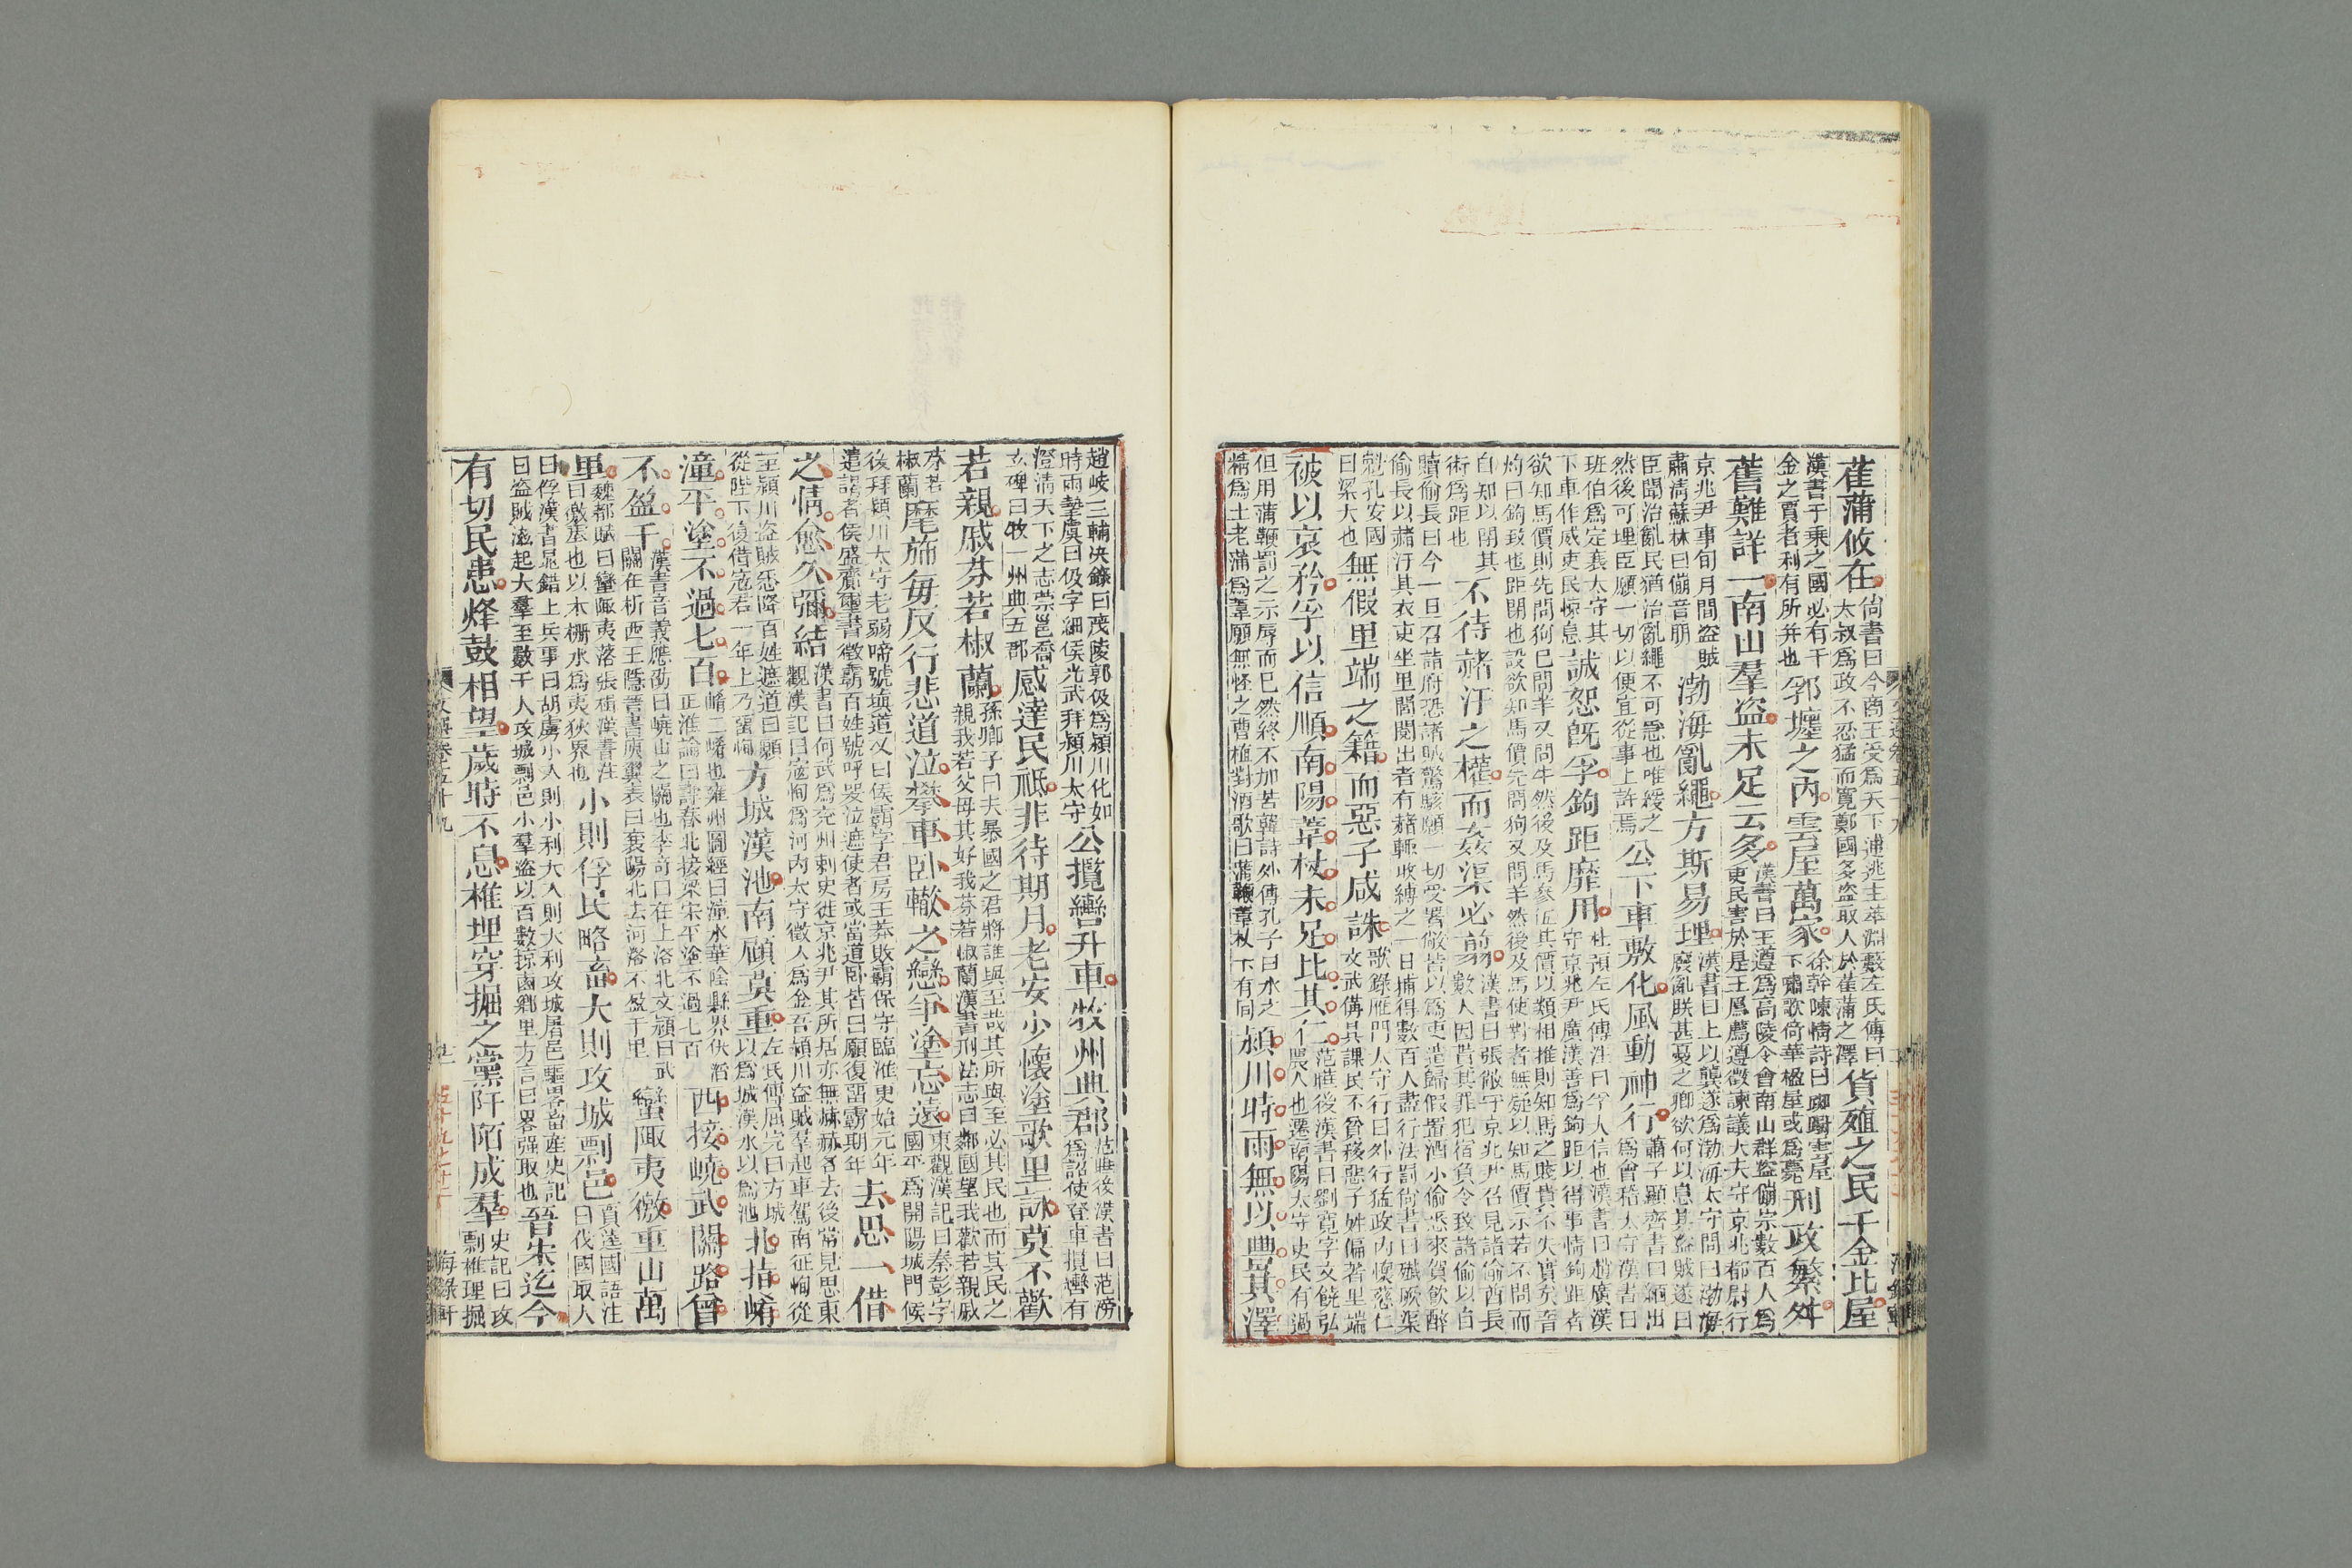 萑蒲攸在
尚書曰今商王受爲天下逋逃主萃淵藪左氏傳曰
太叔爲政不忍猛而寬鄭國多盜取人於萑蒲之澤
貨殖之民千金比屋
漢書千乘之國必有千
金之賈者利有所并也
郛壥之內雲屋萬家
徐幹陳情詩曰踟躕雲屋
下嘯歌倚華楹屋或爲甍
刑政繁舛
舊難詳一南山羣盜未足云多
漢書曰王遵爲高陵令會南山群盜傰宗數百人爲
吏民害於是王鳳薦遵徵諫議大夫守京兆都尉行
京兆尹事旬月間盜賊
肅清蘇林曰傰音朋
渤海亂繩方斯易理
漢書曰上以龔遂爲渤海太守問曰渤海
廢亂朕甚憂之卿欲何以息其盜賊遂曰
臣聞治亂民猶治亂繩不可急也唯緩之
然後可理臣願一切以便宜從事上許焉
公下車敷化風動神行
蕭子顯齊書曰緬出
爲會稽太守漢書曰
班伯爲定襄太守其
下車作威吏民悚息
誠恕旣孚鉤距靡用
杜預左氏傳注曰孚大信也漢書曰趙廣漢
守京兆尹廣漢善爲鉤距以得事情鉤距者
欲知馬價則先問狗已問羊又問牛然後及馬參伍其價以類相推則知馬之賤貴不失實矣晉
灼曰鉤致也距閉也設欲知馬價先問狗又問羊然後及馬使對者無疑以知馬價示若不問而
自知以閉其
術爲距也
不待赭汙之權而姦渠必翦
漢書曰張敞守京兆尹召見諸偷酋長
數人因貰其罪犯宿負令致諸偷以自
贖偷長曰今一旦召諸府恐諸賊驚駭願一切受署敞皆以爲吏遣歸假置酒小偷悉來賀飲醉
偷長以赭汙其衣吏坐里閭閱出者有赭輒收縛之一日捕得數百人盡行法罰尚書曰殲厥渠
魁孔安國
曰渠大也
無假里端之籍而惡子咸誅
歌錄雁門太守行曰外行猛政內懷慈仁
文武備具課民不貧移惡子姓偏著里端
被以哀矜孚以信順南陽葦杖未足比其仁
范曄後漢書曰劉寬字文饒弘
農人也遷南陽太守吏民有過
但用蒲鞭罰之示辱而已然終不加苦韓詩外傳孔子曰水之
精爲土老蒲爲葦願無怪之曹植對酒歌曰蒲鞭葦杖下有同
潁川時雨無以豐其澤
趙岐三輔決錄曰茂陵郭伋爲潁川化如
時雨摯虞曰伋字細侯光武拜潁川太守
公攬轡升車牧州典郡
范曄後漢書曰范滂
爲詔使登車攬轡有
澄清天下之志崇邕喬
玄碑曰牧一州典五郡
感達民祇非待朞月老安少懷塗歌里詠莫不歡
若親戚芬若椒蘭
孫卿子曰夫暴國之君將誰與至哉其所與至必其民也而其民之
親我若父母其好我芬若椒蘭漢書刑法志曰鄰國望我歡若親戚
芬若
椒蘭
麾旆每反行悲道泣攀車臥轍之戀爭塗忘遠
東觀漢記曰秦彭字
國平爲開陽城門候
後拜潁川太守老弱啼號塡道又曰侯霸字君房王莽敗霸保守臨淮更始元年
遣謁者侯盛齎璽書徵霸百姓號呼哭泣遮使者或當道臥皆曰願復留霸期年
去思一借
之情愈久彌結
漢書曰何武爲兗州刺史徙京兆尹其所居亦無赫赫名去後常見思東
觀漢記曰寇恂爲河內太守徵人爲金吾潁川盜賊羣起車駕南征恂從
至潁川盜賊悉降百姓遮道曰願
從陛下復借寇君一年上乃留恂
方城漢池南顧莫重
左氏傳屈完曰方城
以爲城漢水以爲池
北指崤
潼平塗不過七百
崤二崤也雍州圖經曰潼水華陰縣界伏滔
正淮論曰壽春北接梁宋平塗不過七百
西接嶢武關路曾
不盈千
漢書音義應劭曰嶢山之關也李奇曰在上洛北文穎曰武
關在析西王隱晉書庾翼表曰襄陽北去河洛不盈千里
蠻陬夷徼重山萬
里
魏都賦曰蠻陬夷落張揖漢書注
曰徼塞也以木柵水爲夷狄界也
小則俘民略畜大則攻城剽邑
賈逵國語注
曰伐國取人
曰俘漢書晁錯上兵事曰胡虜小入則小利大入則大利攻城屠邑驅畧畜產史記
曰盜賊滋起大羣至數千人攻城剽邑小羣盜以百數掠鹵鄉里方言曰畧强取也
晉宋迄今
有切民患烽鼓相望歲時不息椎埋穿掘之黨阡陌成羣
史記曰攻
剽椎埋掘
海錄軒